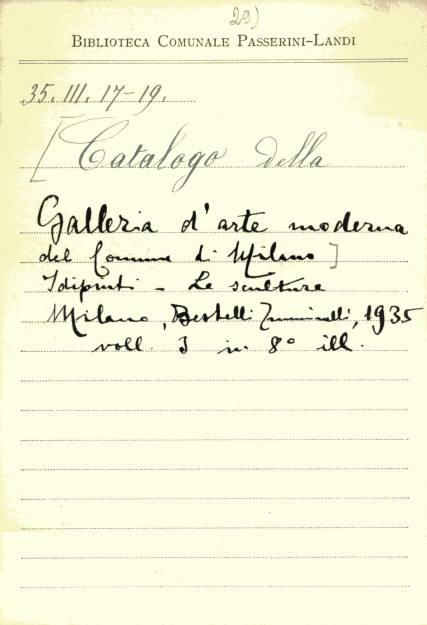 20)
BIBLIOTECA COMUNALE PASSERINI-LANDI
35. III. 17-19.
[Catalogo della
Galleria d'arte moderna
del Comune di Milano]
I dipinti - Le sculture
Milano, Bestetti Tumminelli, 1935
voll. 3 in 8° ill.